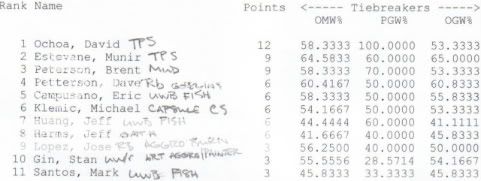 Rank Name Points <----- Tiebreakers ----->
OMW% PGW% OGW%
1 Ochoa, David TPS 12 58.3333 100.0000 53.3333
2 Estevane, Munir TPS 9 64.5833 60.0000 65.0000
3 Peterson, Brent MWD 9 58.3333 70.0000 53.3333
4 Petterson, Dave Rb GOBLINS 6 60.4167 50.0000 60.8333
5 Campusano, Eric UWB FISH 6 58.3333 50.0000 55.8333
6 Klemic, Michael CAPSULE CS 6 54.1667 50.0000 53.3333
7 Huang, Jeff UWB FISH 6 44.4444 60.0000 41.1111
8 Harms, Jeff OATH 6 41.6667 40.0000 45.8333
9 Lopez, Jose RB AGGRO 3 56.2500 40.0000 50.0000
10 Gin, Stan ART AGGRO/PAINTER 3 55.5556 28.5714 54.1667
11 Santos, Mark UWB FISH 3 45.8333 33.3333 45.8333